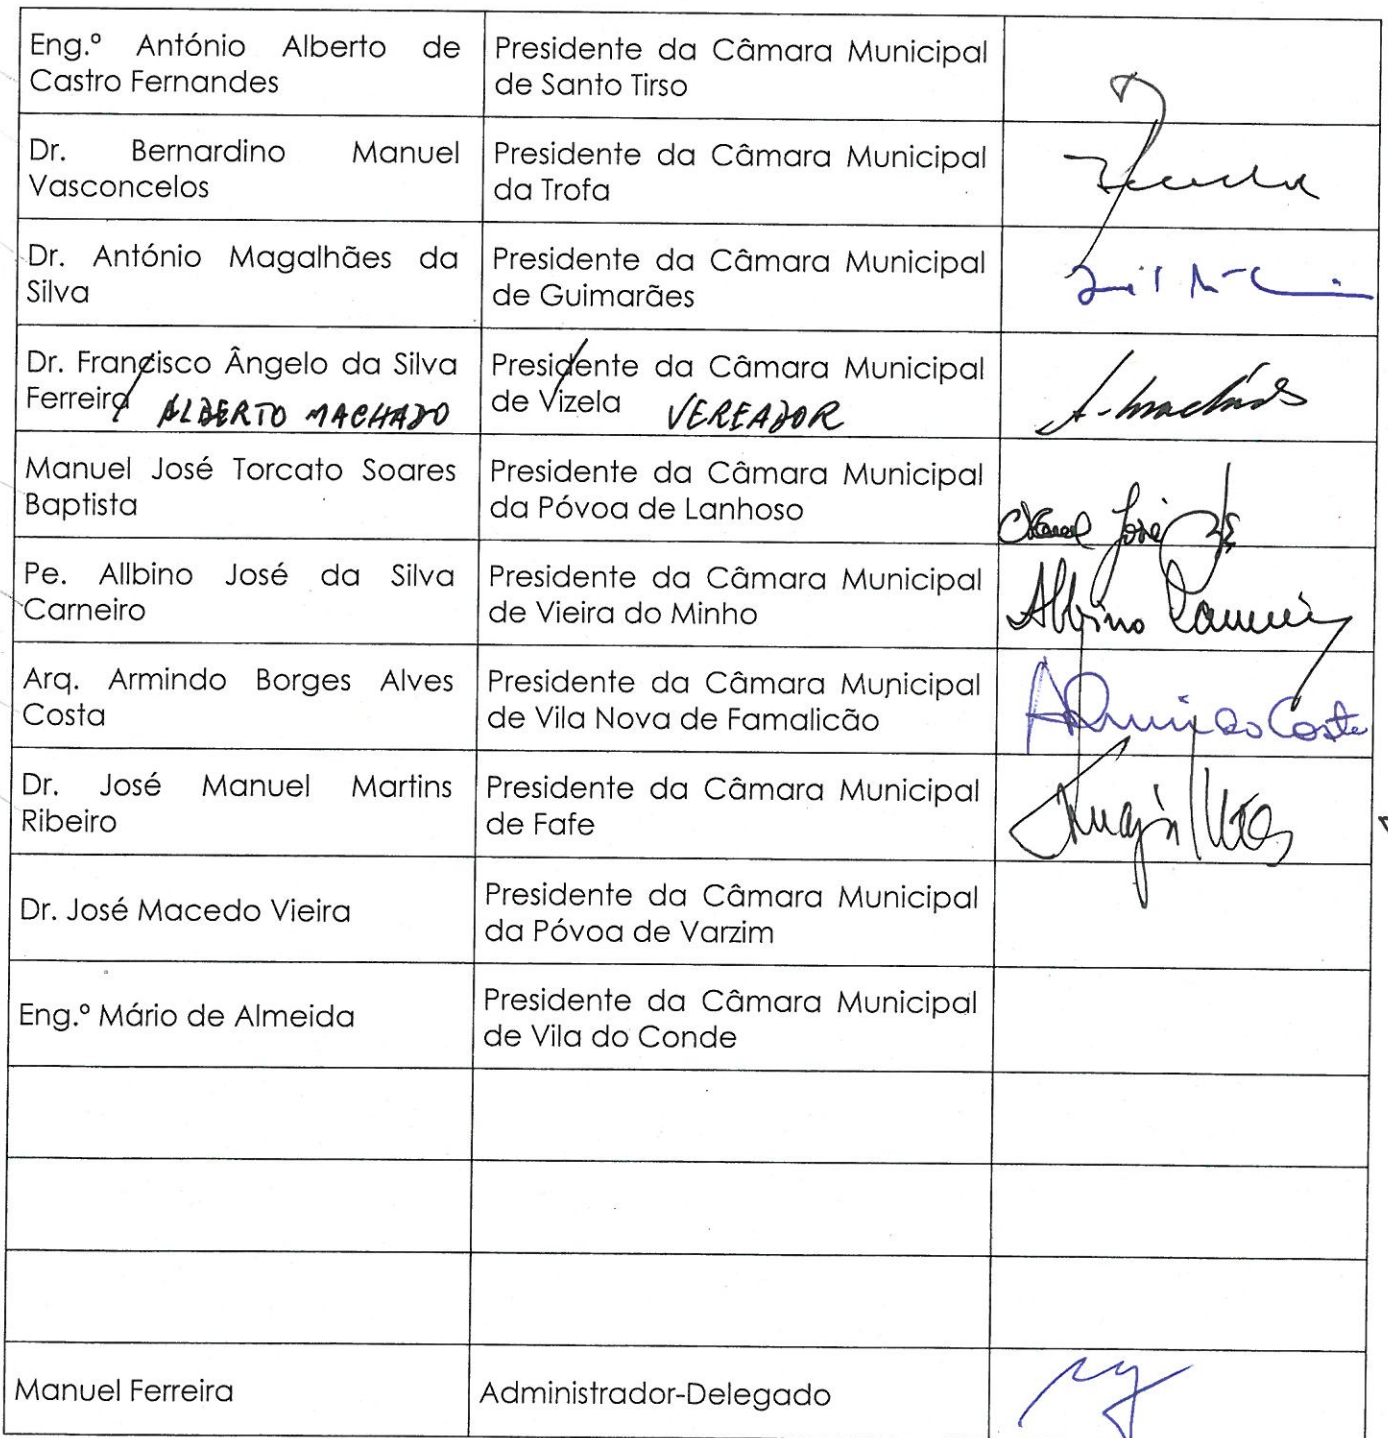 Eng.º António Alberto de
Castro Fernandes
Presidente da Câmara Municipal
de Santo Tirso
Dr. Bernardino Manuel
Vasconcelos
Presidente da Câmara Municipal
da Trofa
Dr. António Magalhães da
Silva
Presidente da Câmara Municipal
de Guimarães
Dr. Francisco Ângelo da Silva
Ferreira ALBERTO MACHADO
Presidente da Câmara Municipal
de Vizela VEREADOR
A. Machado
Manuel José Torcato Soares
Baptista
Presidente da Câmara Municipal
da Póvoa de Lanhoso
Manuel José
Pe. Allbino José da Silva
Carneiro
Presidente da Câmara Municipal
de Vieira do Minho
Albino Carneiro
Arq. Armindo Borges Alves
Costa
Presidente da Câmara Municipal
de Vila Nova de Famalicão
Armindo Costa
Dr. José Manuel Martins
Ribeiro
Presidente da Câmara Municipal
de Fafe
Dr. José Macedo Vieira
Presidente da Câmara Municipal
da Póvoa de Varzim
Eng.º Mário de Almeida
Presidente da Câmara Municipal
de Vila do Conde
Manuel Ferreira
Administrador-Delegado